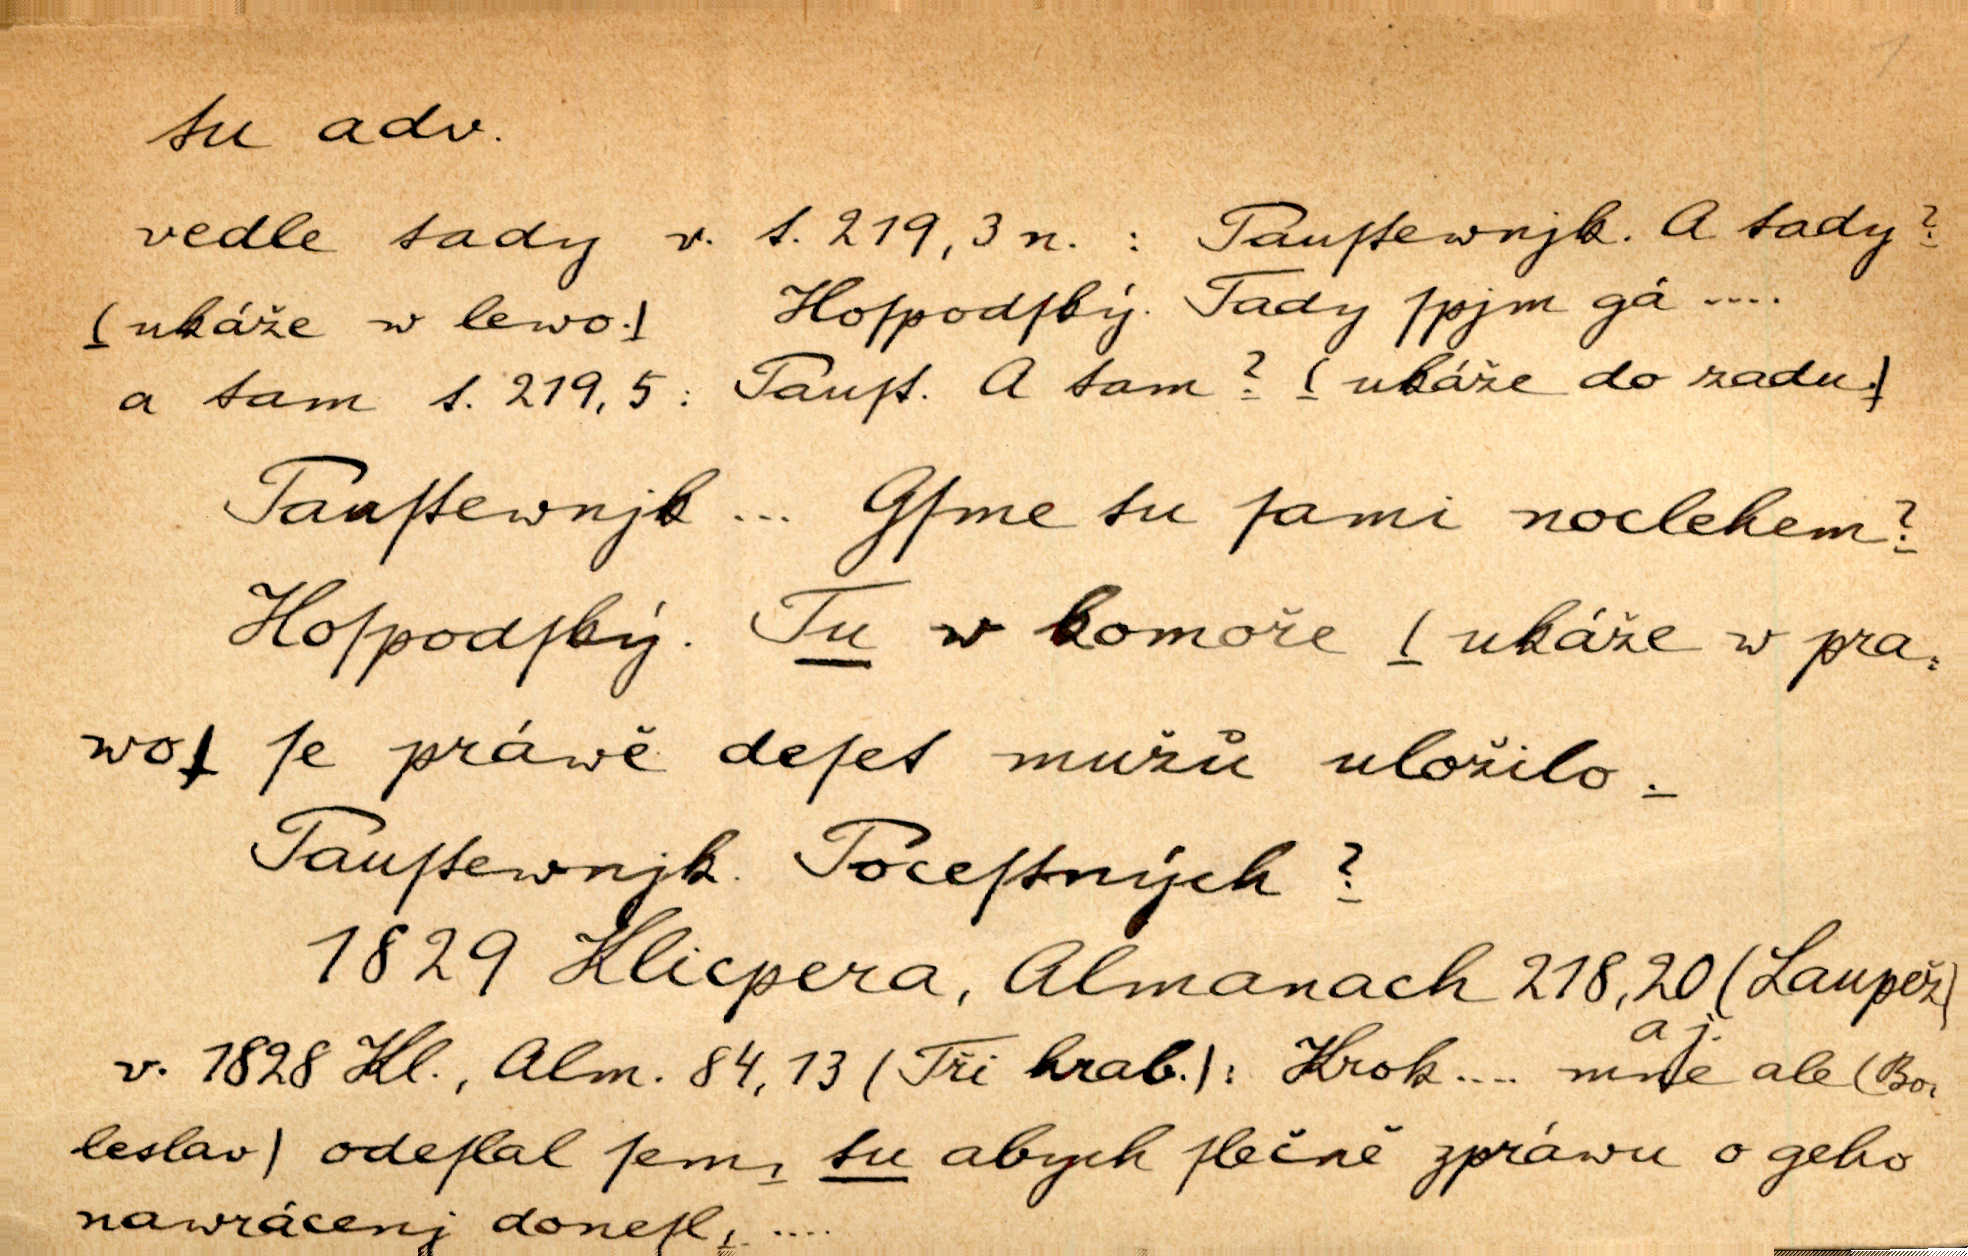 tu adv.
vedle tady v. t. 219,3 n. : Pauſtewnjk. A tady?
(ukáže w lewo.) Hoſpodſký. Tady ſpjm gá ....
a tam t. 219,5 : Pauſt. A tam? (ukáže do zadu.)
Pauſtewnjk ... Gſme tu ſami noclehem?
Hoſpodſký. Tu w komoře (ukáže w pra-
wo) ſe práwě deſet mužů uložilo.
Pauſtewnjk. Poceſtných?
1829 Klicpera, Almanach 218,20 (Laupež)
v. 1828 Kl., Alm. 84,13 (Tři hrab.): Krok .... mne aj. ale (Bo-
leslav) odeſlal ſem, tu abych ſlečně zpráwu o geho
nawrácenj doneſl, ....